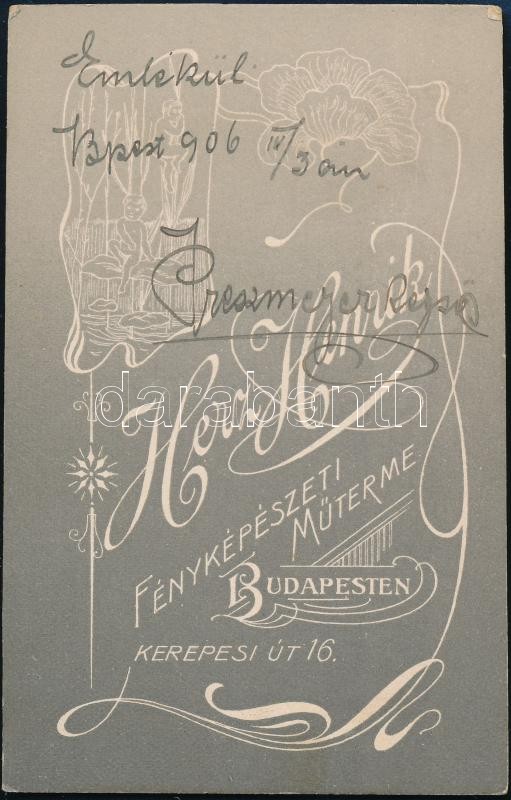 Emlékül
Bpest 906 IV/3 án
Rezső
darabanth
Herz Henrik
FÉNYKÉPÉSZETI
MŰTERME
BUDAPESTEN
KEREPESI ÚT 16.